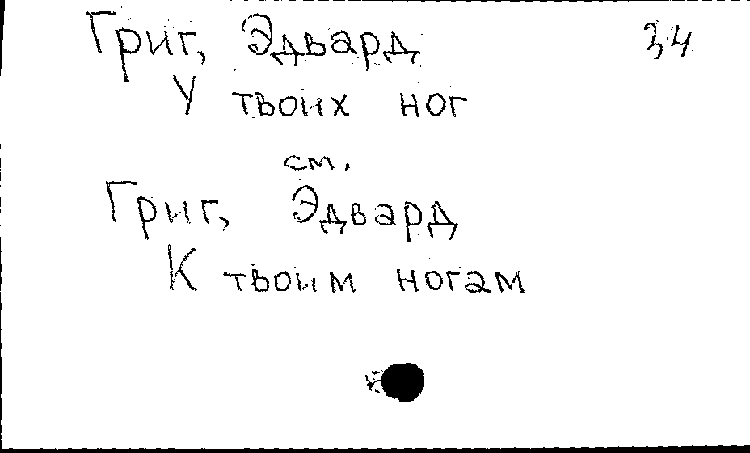 Григ, Эдвард 34
У твоих ног
см.
Григ, Эдвард
К твоим ногам